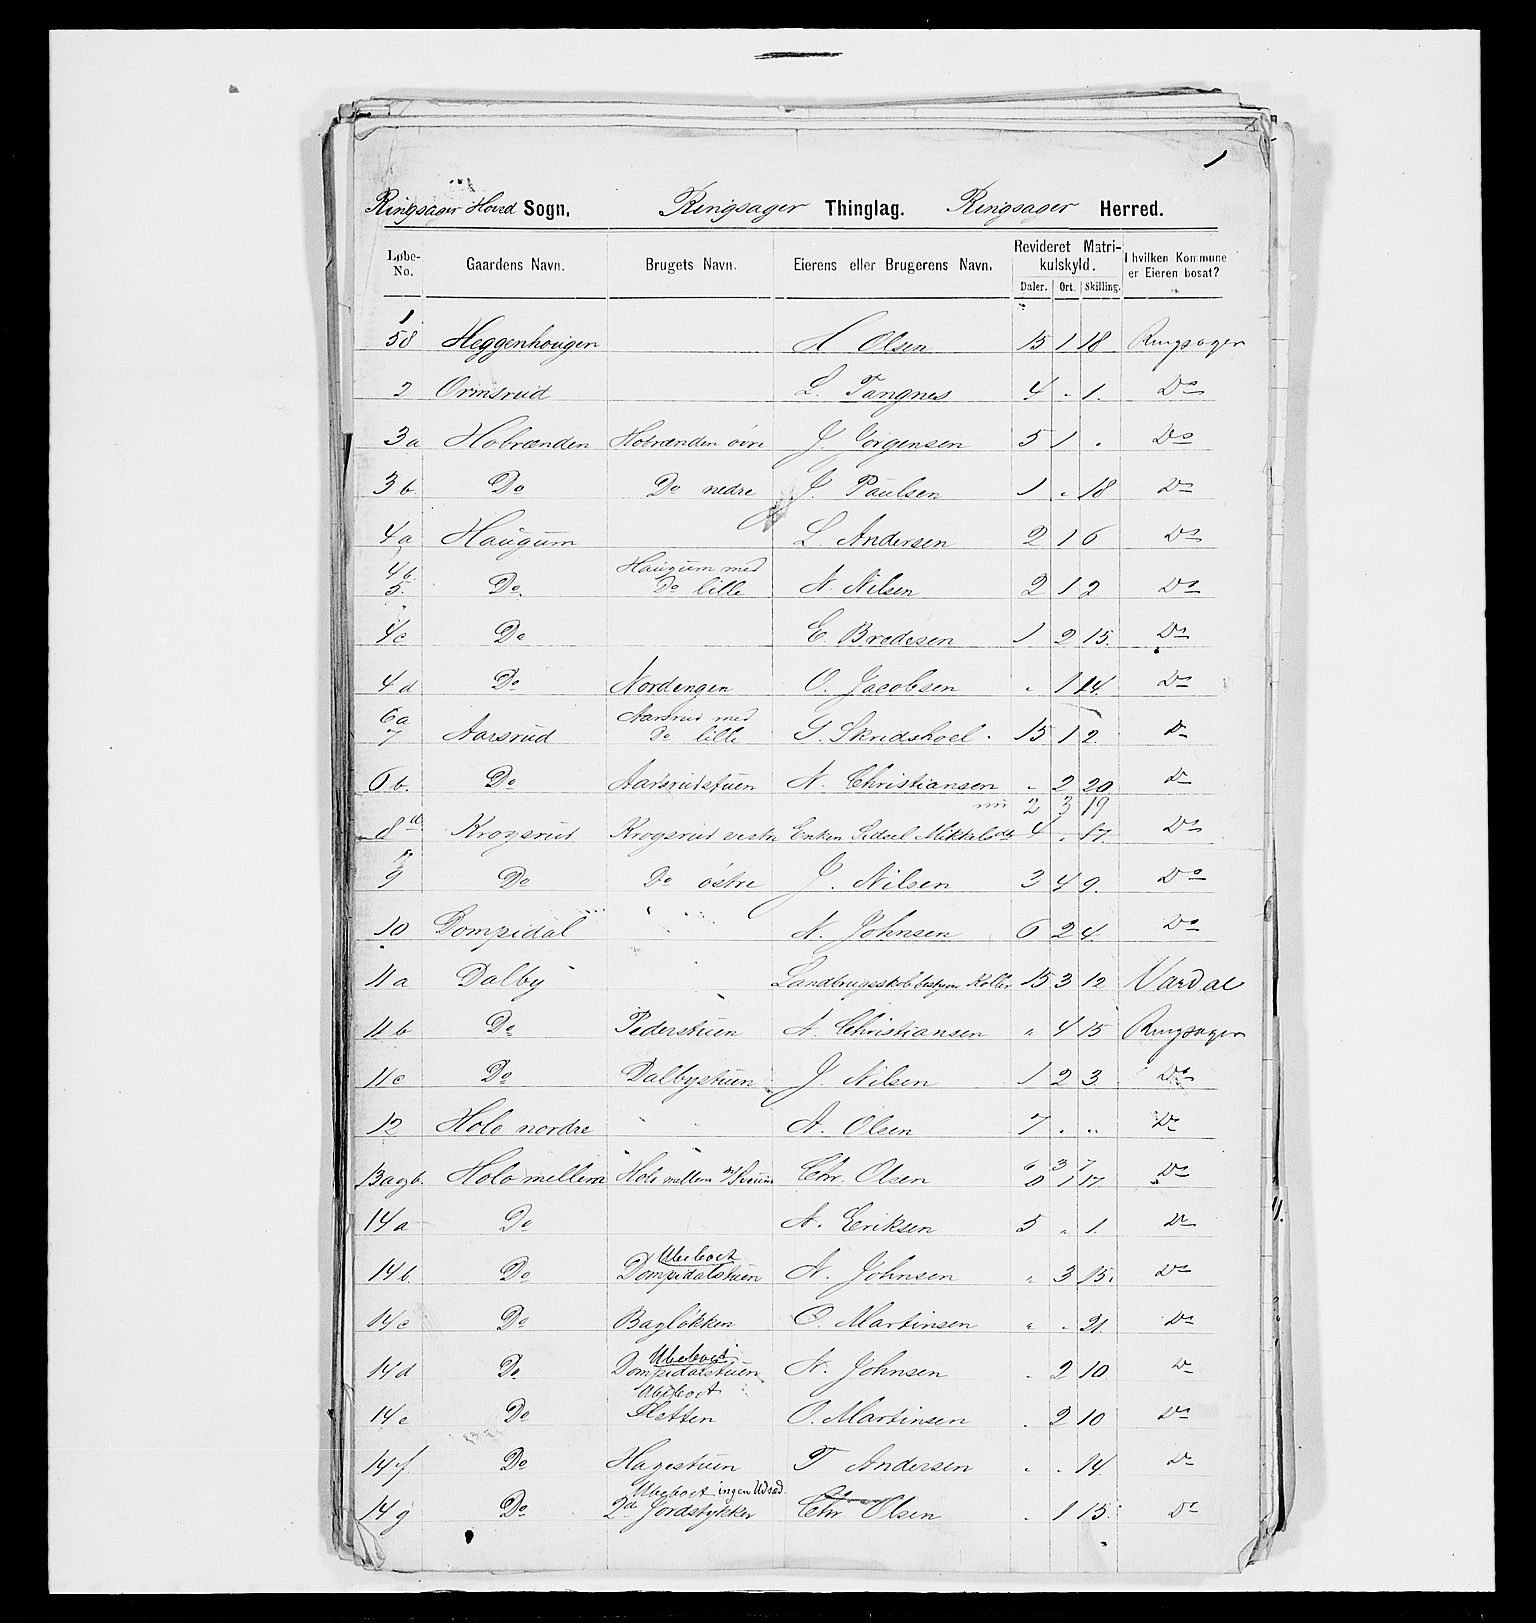 1
Ringsager Hoved Sogn. Ringsager Thinglag. Ringsager Herred.
Løbe-No. Gaardens Navn. Brugets Navn. Eierens eller Brugerens Navn. Revideret Matrikulskyld. I hvilken Kommune er Eieren bosat?
Daler. Ort. Skilling.
1
58 Heggenhougen H Olsen 15 1 18 Ringsager
2 Ormsrud L. Tangnes 4 - 1. Do
3a Hobrænden Hobrænden övre J. Jörgensen 5 1 . Do
3b Do Do nedre J. Paulsen 1 - 18 Do
4a Haugum L. Andersen 2 1 6 Do
4b Haugum med
5. Do Do lille N. Nilsen 2 1 2 Do
4c Do E. Bredesen 1 2 15. Do
4d Do Nordengen O. Jacobsen - 1 14. Do
6a Aarsrud med
7 Aarsrud Do lille S. Skredshoel 15 1 2 Do
6b. Do Aarsrudstuen N. Christiansen - 2 20 Do
2 3 19
8 Krogsrud Krogsrud vestre Enken Sidsel Mikkelsdr 4 - 17. Do
9 Do Do östre J. Nilsen 3 4 9. Do
10 Dompidal N. Johnsen 6 2 4. Do
11a Dalby Landbrugsskolebestyrer Koller 15 3 12 Vardal
11b Do Pederstuen N. Christiansen " 4 15 Ringsager
11c Do Dalbystuen J. Nilsen 1 2 3 Do
12 Holo nordre A. Olsen 7 . .. Do
6 3 7
13a&b. Holo mellem Holo mellem m/ Chr. Olsen 0 1 17. Do
14a Do N. Eriksen 5 " 1. Do
Ubeboet
14b Do Dompidalstuen N. Johnsen " 3 15. Do
14c Do Baglökken O. Martinsen " - 21. Do
Ubeboet
14d Do Dompidalstuen N. Johnsen . 2 10 Do
Ubeboet
14e Do Sletten O. Martinsen . 2 10 Do
14f Do Hagestuen T Andersen - - 14. Do
Ubeboet ingen Udsæd.
14g Do 2de Jordstykker Chr Olsen . 1 15. Do